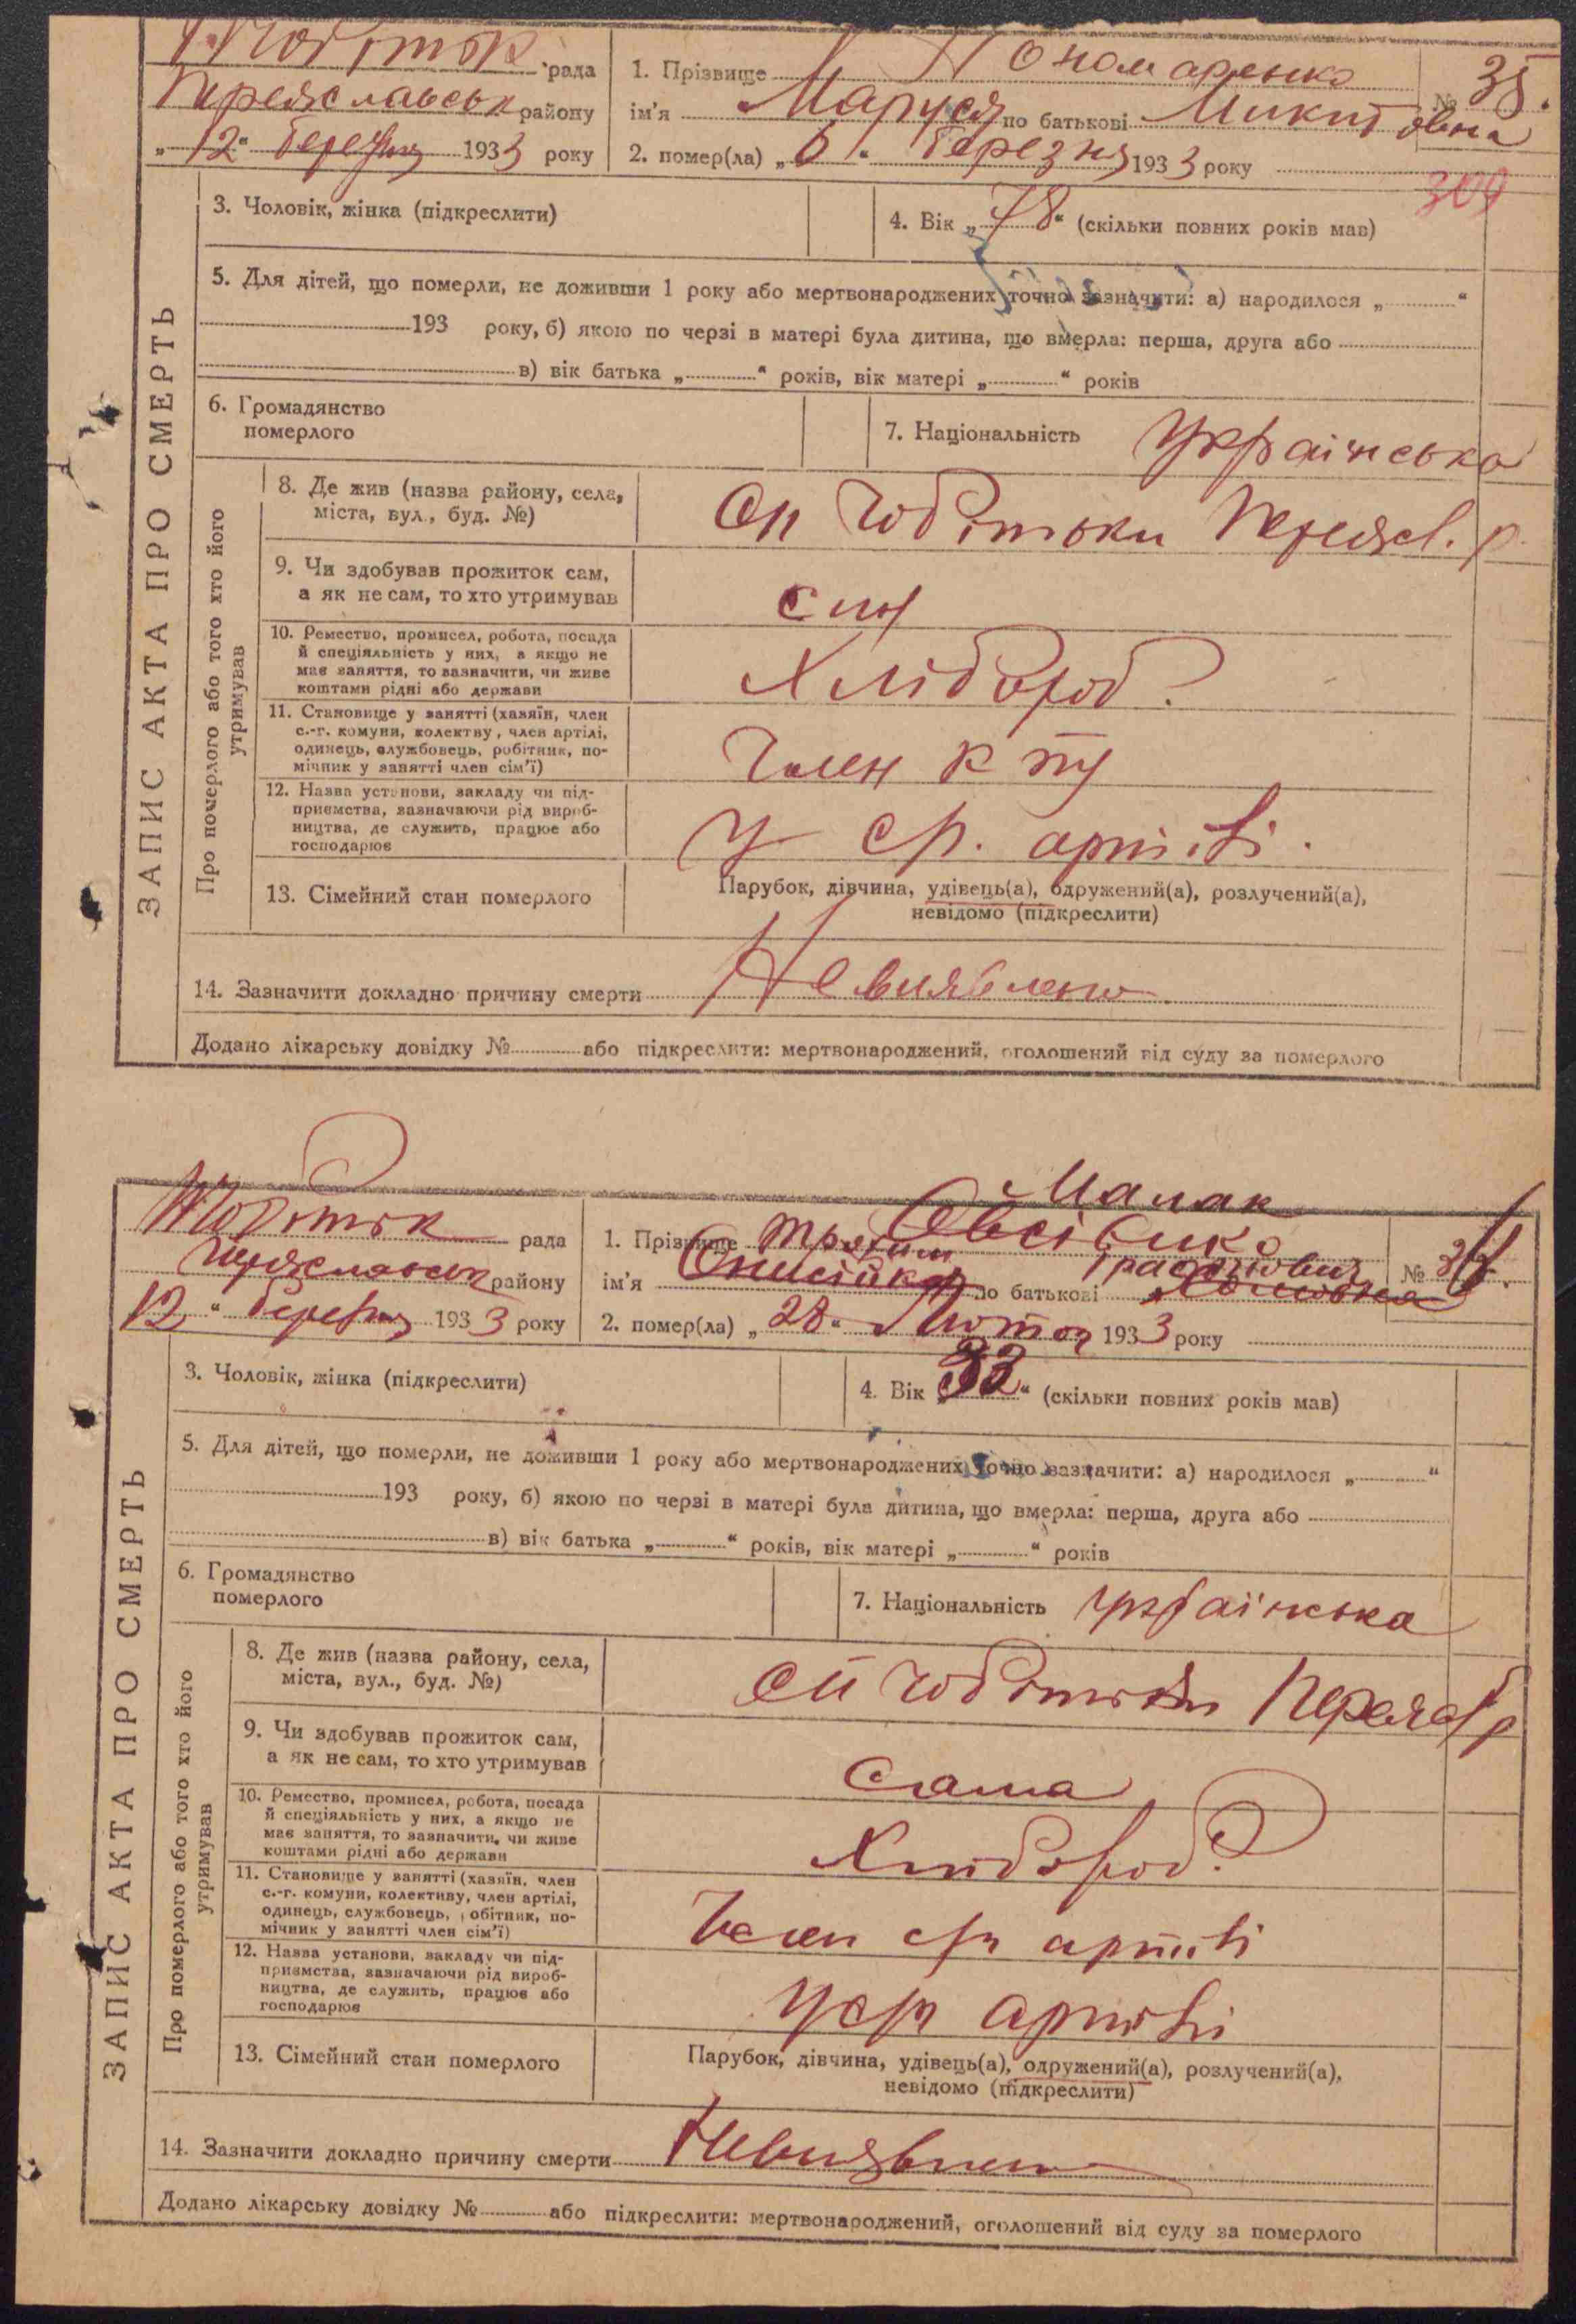 Чобітьк рада
Переяславськ району
„12“ березня 1933 року
1. Прізвище Пономаренко № 35.
ім'я Маруся по батькові Микитовна
2. помер(ла) „6“ березня 1933 року
309
ЗАПИС АКТА ПРО СМЕРТЬ
3. Чоловік, жінка (підкреслити)
4. Вік „78“ (скільки повних років мав)
5. Для дітей, що померли, не доживши 1 року або мертвонароджених точно зазначити: а) народилося „ “
193 року, б) якою по черзі в матері була дитина, що вмерла: перша, друга або
в) вік батька „ “ років, вік матері „ “ років
6. Громадянство
померлого
7. Національність українська
Про померлого або того хто його
утримував
8. Де жив (назва району, села,
міста, вул., буд. №)
Сп Чобітьки Переясл. р.
9. Чи здобував прожиток сам,
а як не сам, то хто утримував
син
10. Ремество, промисел, робота, посада
й спеціяльність у них, а якщо не
має заняття, то зазначити, чи живе
коштами рідні або держави
Хлібороб.
11. Становище у занятті (хазяїн, член
с.-г. комуни, колективу, член артілі,
одинець, службовець, робітник, по-
мічник у занятті член сім'ї)
Член
12. Назва установи, закладу чи під-
приємства, зазначаючи рід вироб-
ництва, де служить, працює або
господарює
У ср. артілі.
13. Сімейний стан померлого
Парубок, дівчина, удівець(а), одружений(а), розлучений(а),
невідомо (підкреслити)
14. Зазначити докладно причину смерти Невиявлено
Додано лікарську довідку № або підкреслити: мертвонароджений, оголошений від суду за померлого
Чобітьк рада
Переяславськ району
12“ березня 1933 року
Малак
1. Прізвище Трохим Овсієнко
ім'я Онисійка по батькові
2. помер(ла) „28“ Лютого 1933 року
ЗАПИС АКТА ПРО СМЕРТЬ
3. Чоловік, жінка (підкреслити)
4. Вік „33“ (скільки повних років мав)
5. Для дітей, що померли, не доживши 1 року або мертвонароджених точно зазначити: а) народилося „ “
193 року, б) якою по черзі в матері була дитина, що вмерла: перша, друга або
в) вік батька „ “ років, вік матері „ “ років
6. Громадянство
померлого
7. Національність українська
Про померлого або того хто його
утримував
8. Де жив (назва району, села,
міста, вул., буд. №)
Сп Чобітьки Переясл р
9. Чи здобував прожиток сам,
а як не сам, то хто утримував
Сама
10. Ремество, промисел, робота, посада
й спеціяльність у них, а якщо не
має заняття, то зазначити, чи живе
коштами рідні або держави
Хлібороб.
11. Становище у занятті (хазяїн, член
с.-г. комуни, колективу, член артілі,
одинець, службовець, робітник, по-
мічник у занятті член сім'ї)
Член ср артілі
12. Назва установи, закладу чи під-
приємства, зазначаючи рід вироб-
ництва, де служить, працює або
господарює
У ср артілі
13. Сімейний стан померлого
Парубок, дівчина, удівець(а), одружений(а), розлучений(а),
невідомо (підкреслити)
14. Зазначити докладно причину смерти Невиявлено
Додано лікарську довідку № або підкреслити: мертвонароджений, оголошений від суду за померлого